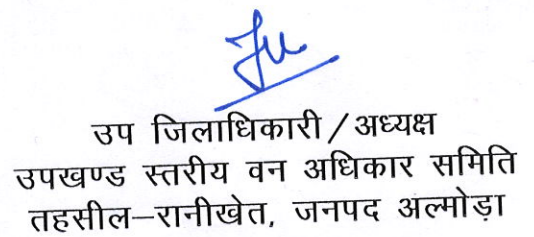 उप जिलाधिकारी/अध्यक्ष
उपखण्ड स्तरीय वन अधिकार समिति
तहसील–रानीखेत, जनपद अल्मोड़ा